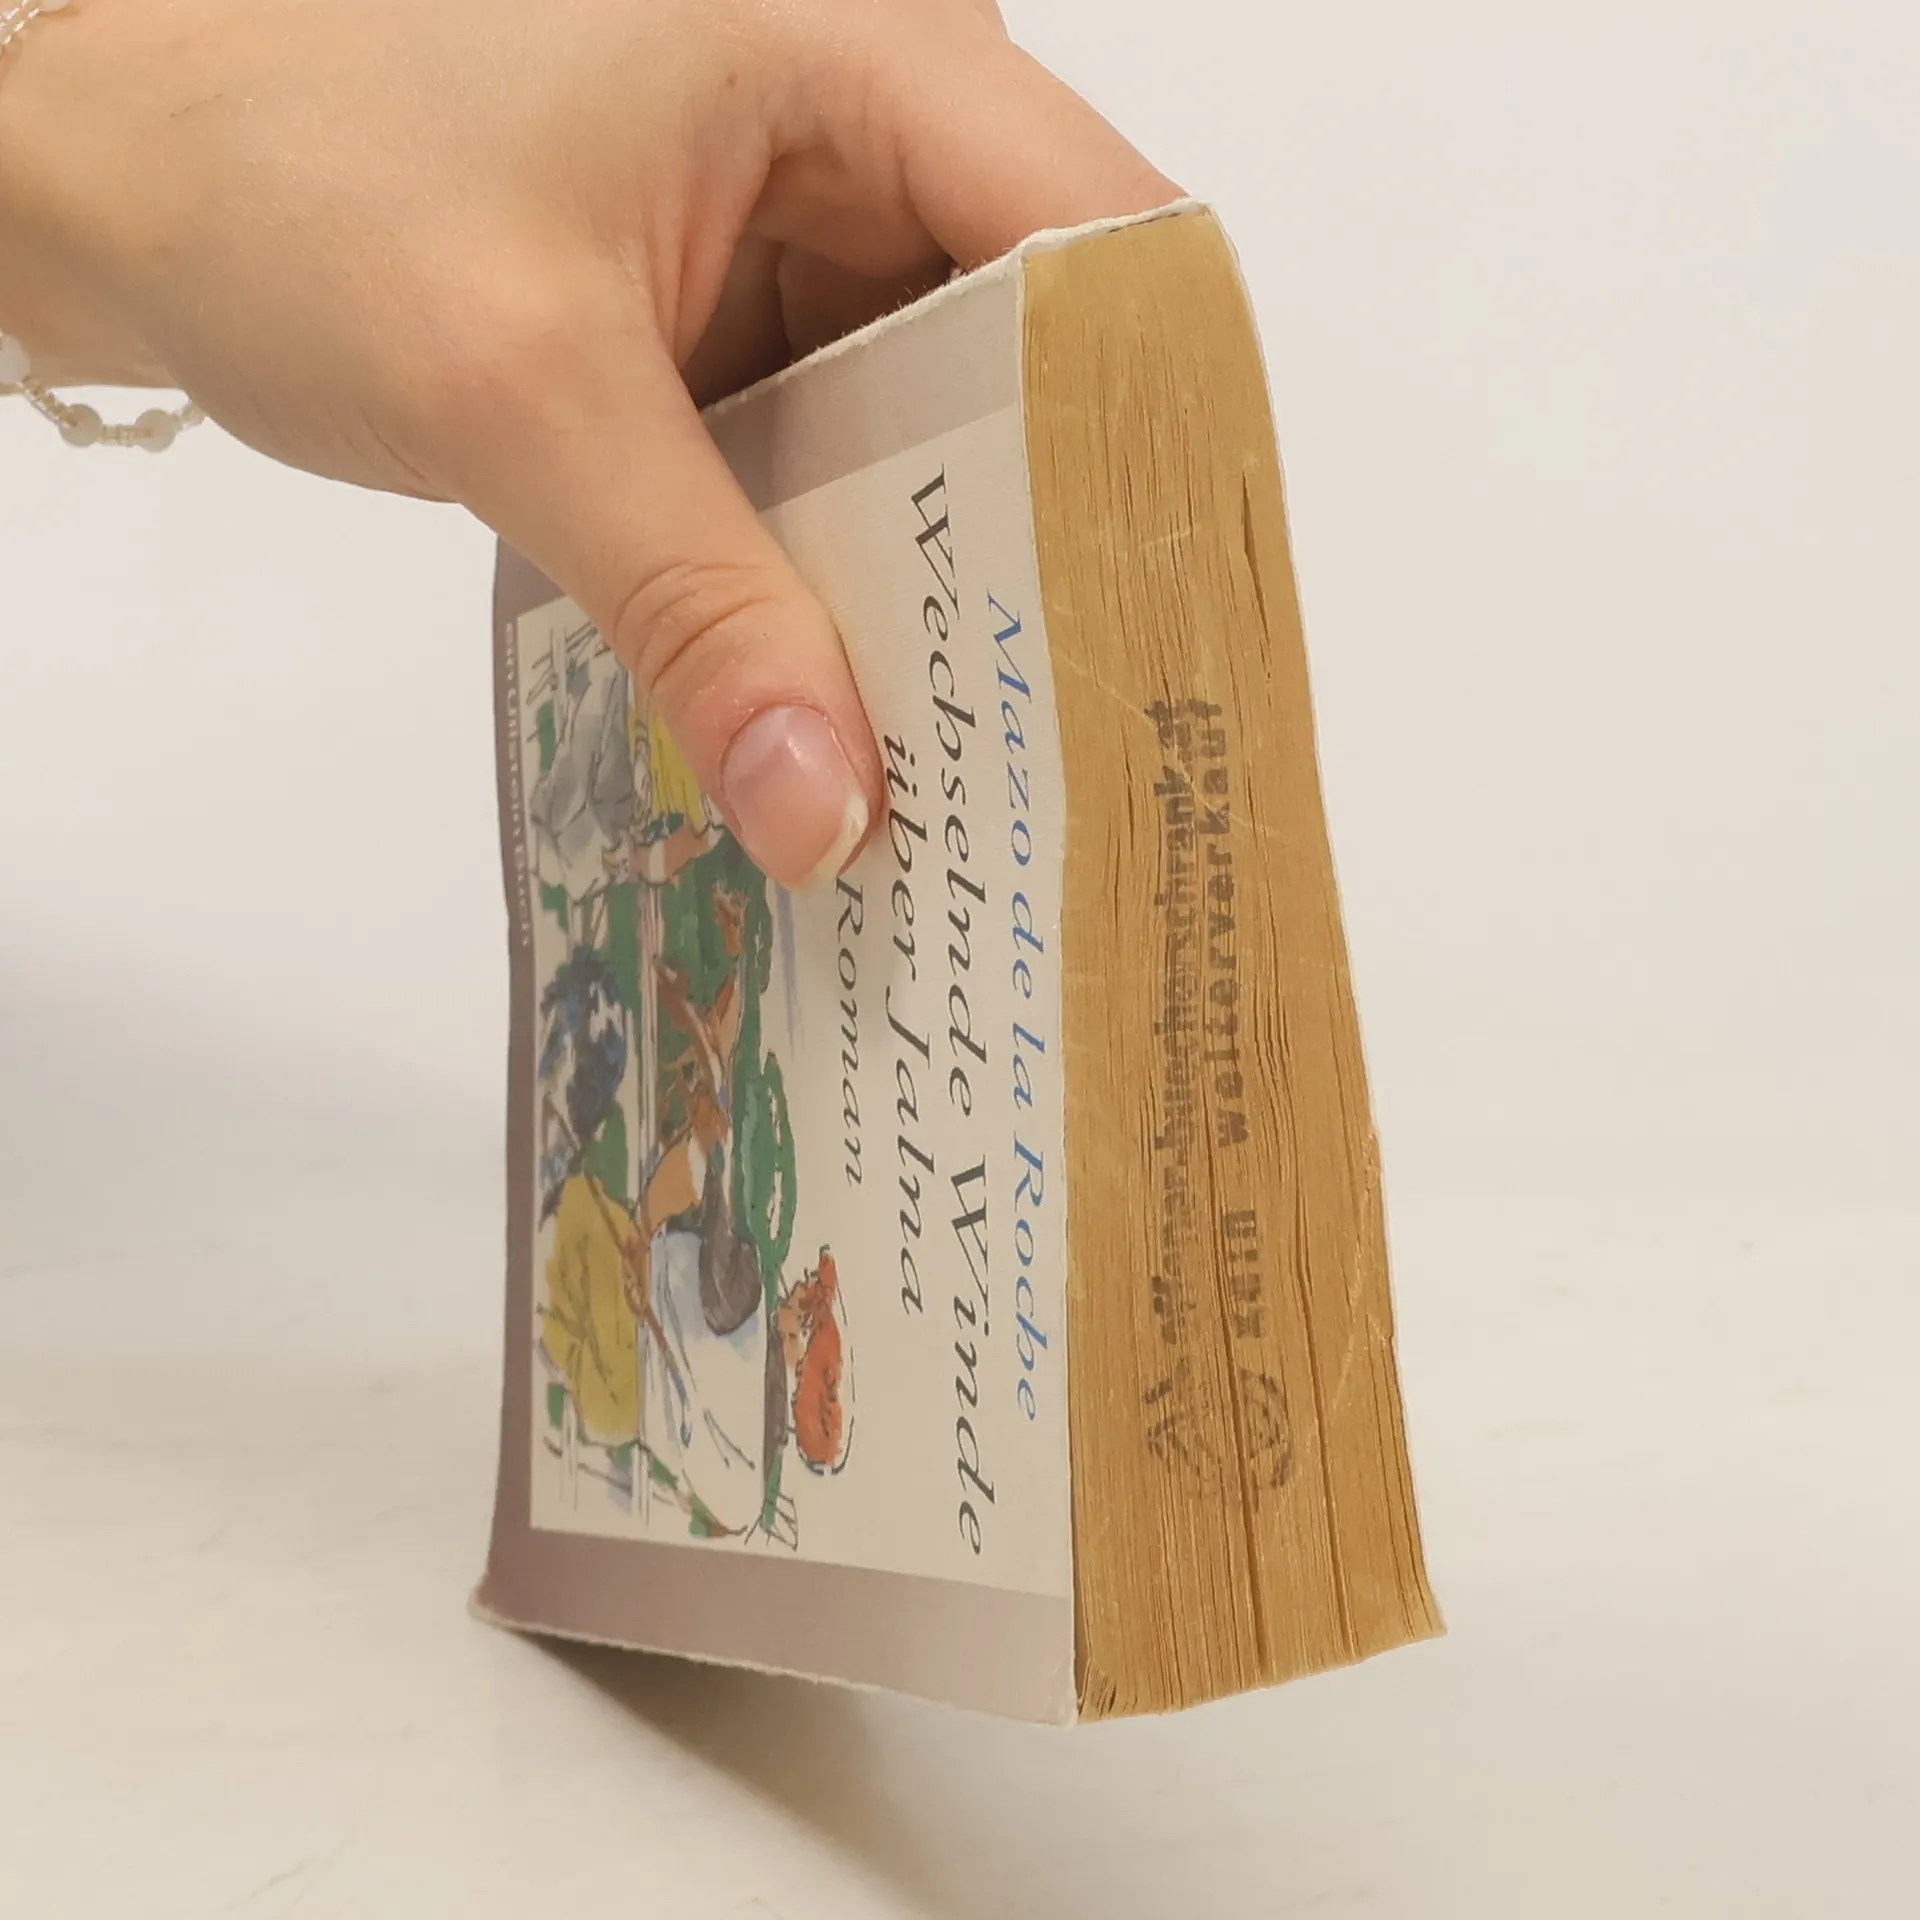 Mazo de la Roche
Wechselnde Winde
über Jalna
Roman
ein Ullstein Buch
offener-buecherschrank.at
zum weiterverkauf